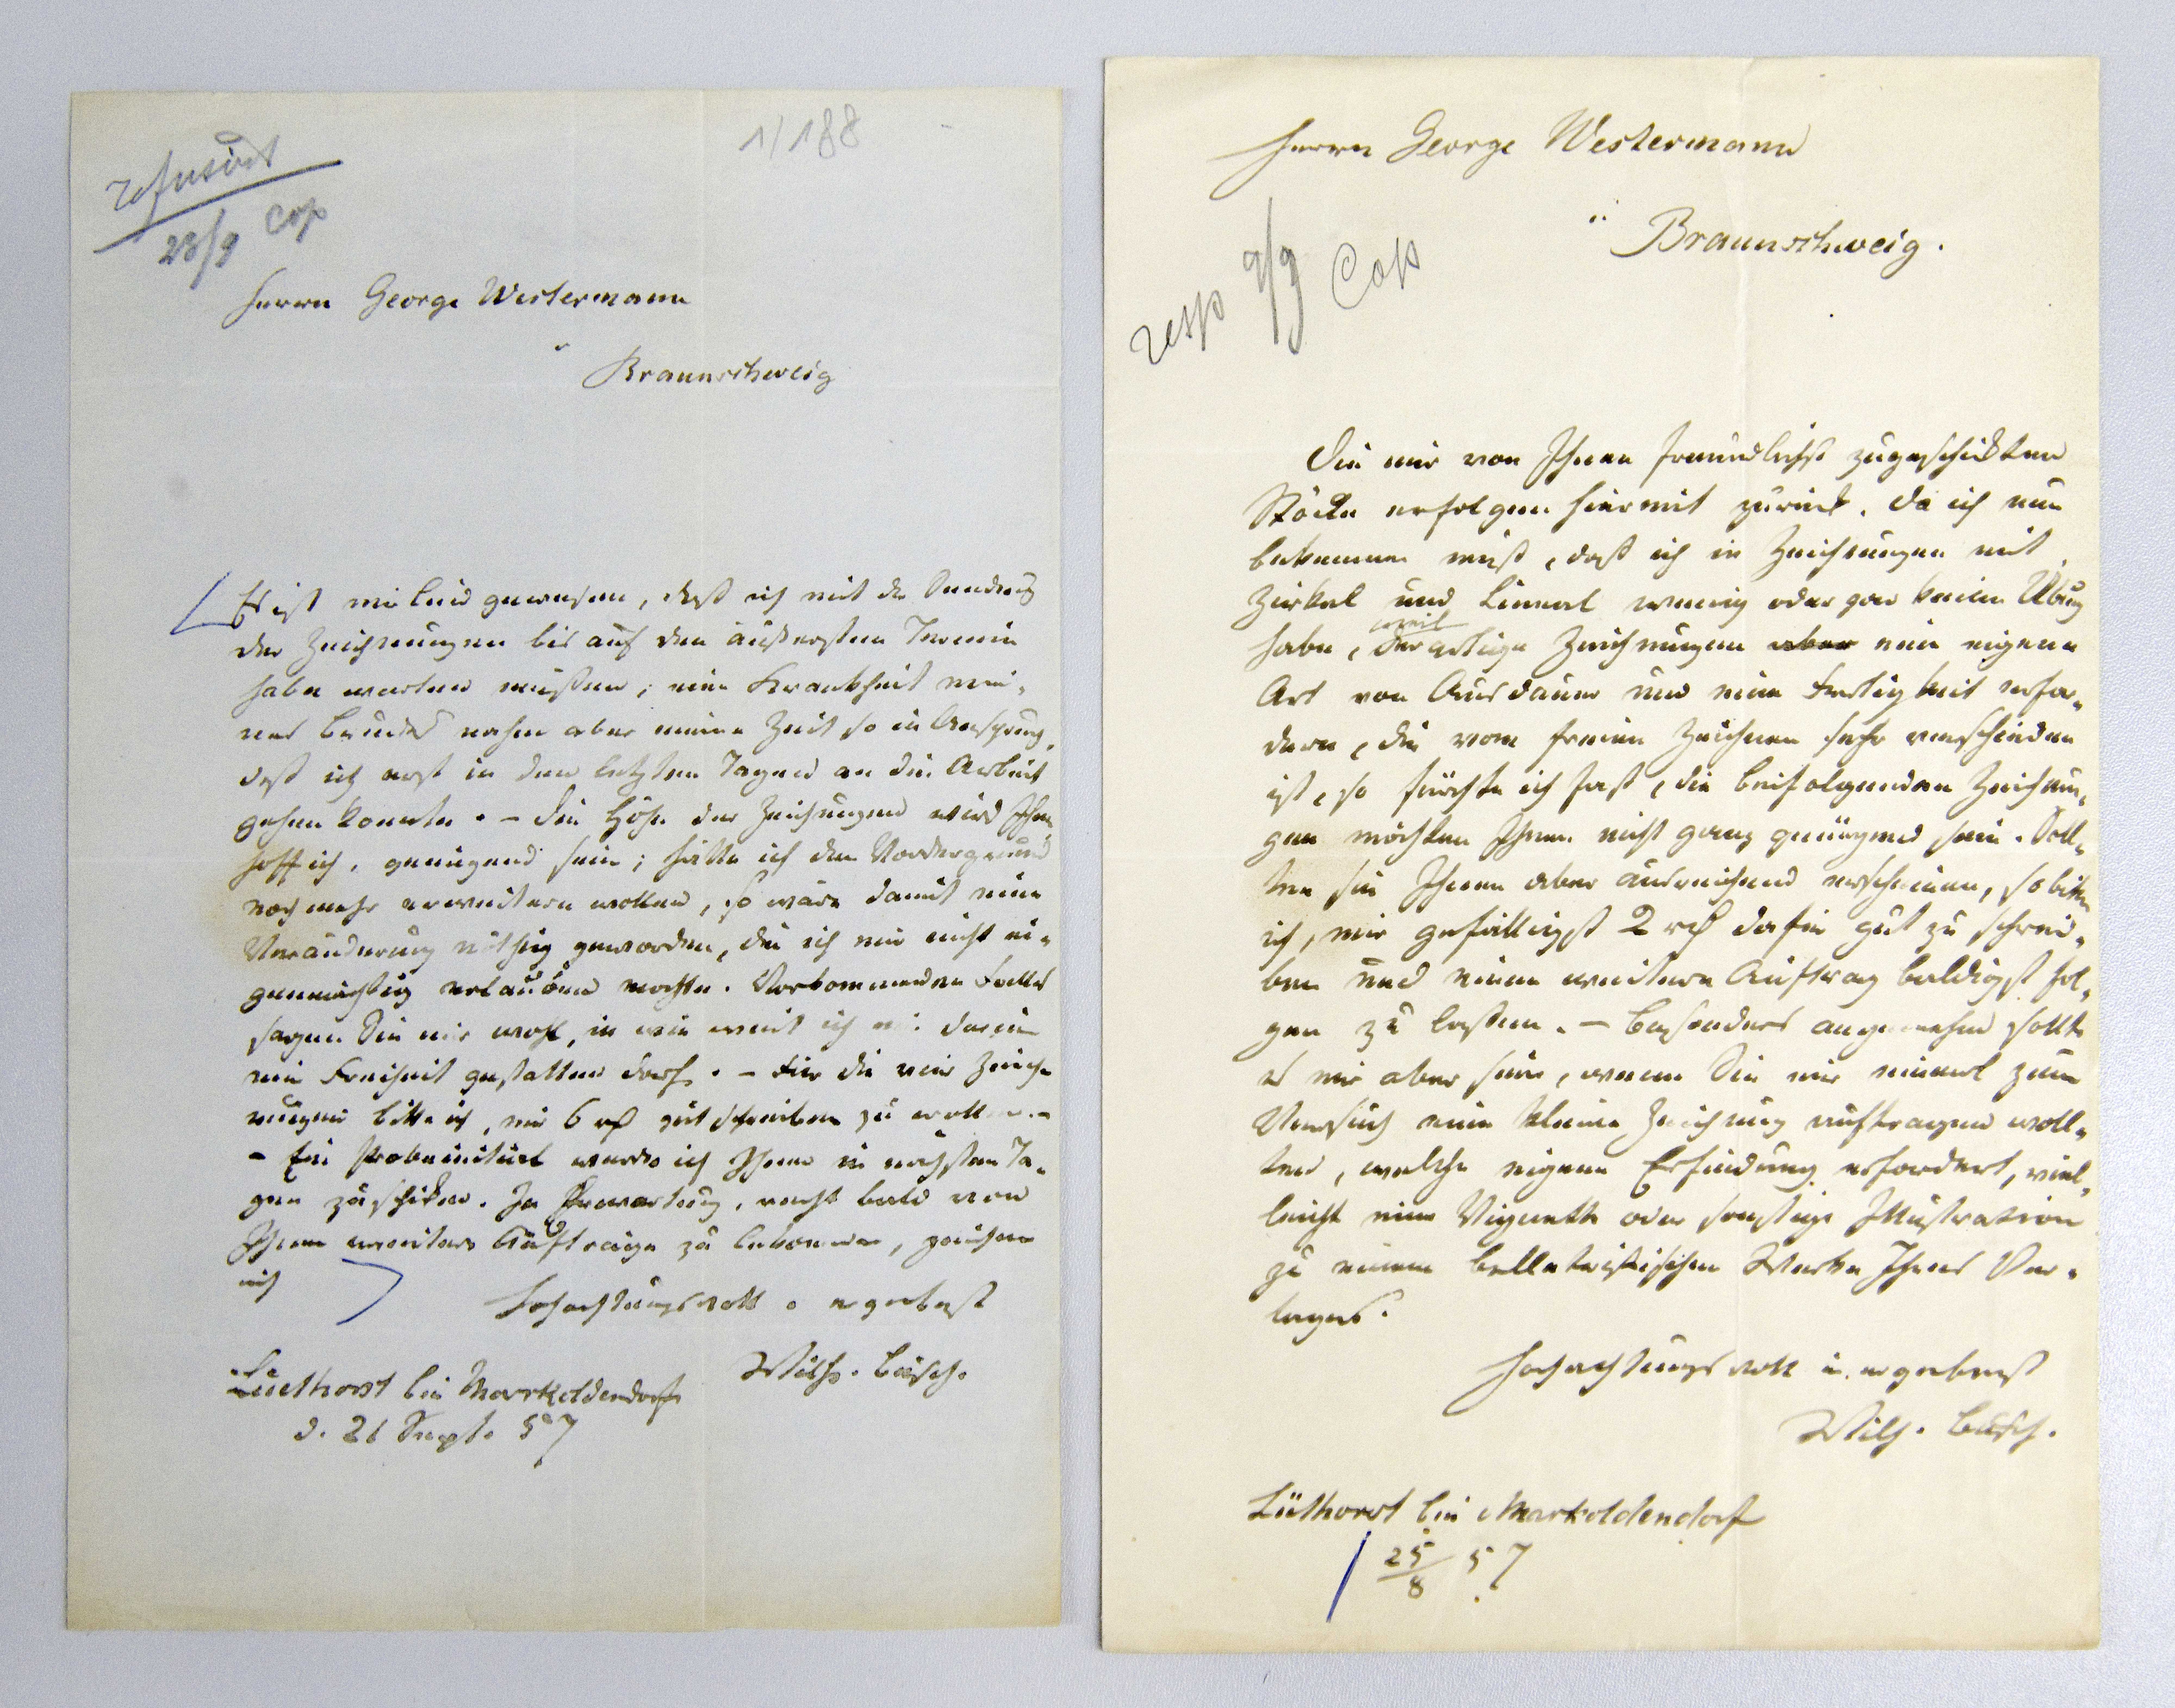 1/188
refusirt
23/9 Cop
Herrn George Westermann
Braunschweig
Es ist mir leid gewesen, daß ich mit der Sendung
der Zeichnungen bis auf den äußersten Termin
habe warten müssen; eine Krankheit mei-
nes Bruders nahm aber meine Zeit so in Anspruch,
daß ich erst in den letzten Tagen an die Arbeit
gehen konnte. – Die Höhe der Zeichnungen wird Ihnen
hoff ich, genügend sein; hätte ich den Vordergrund
noch mehr erweitern wollen, so wäre damit eine
Veränderung nöthig geworden, die ich mir nicht ei-
genmächtig erlauben mochte. Vorkommenden Falles
sagen Sie mir wohl, in wie weit ich mir darin
eine Freiheit gestatten darf. – Für die vier Zeich-
nungen bitte ich, mir 6 rß gut schreiben zu wollen. –
– Ein Probeinitial werde ich Ihnen in nächsten Ta-
gen zuschicken. In Erwartung, recht bald von
Ihnen weitere Aufträge zu bekommen, zeichne
mich
Hochachtungsvoll u ergebenst
Wilh. Busch.
Lüethorst bei Markoldendorf
d. 21 Sept. 57
Herrn George Westermann
Braunschweig.
resp 9/9 Cop
Die mir von Ihnen freundlichst zugeschickten
Stöcke erfolgen hiermit zurück. Da ich nun
bekennen muß, daß ich in Zeichnungen mit
Zirkel und Lineal wenig oder gar keine Übung
weil
habe, derartige Zeichnungen aber eine eigene
Art von Ausdauer und eine Fertigkeit erfor-
dern, die vom freien Zeichnen sehr verschieden
ist, so fürchte ich fast, die beifolgenden Zeichnun-
gen möchten Ihnen nicht ganz genügend sein. Soll-
ten sie Ihnen aber ausreichend erscheinen, so bitte
ich, mir gefälligst 2 rß dafür gut zu schrei-
ben und einen weitern Auftrag baldigst fol-
gen zu lassen. – Besonders angenehm sollte
es mir aber sein, wenn Sie mir einmal zum
Versuch eine kleine Zeichnung auftragen woll-
ten, welche eigene Erfindung erfordert, viel-
leicht eine Vignette oder sonstige Illustration
zu einem belletristischen Werke Ihres Ver-
lages.
Hochachtungsvoll u. ergebenst
Wilh. Busch.
Lüthorst bei Markoldendorf
25/8 57.